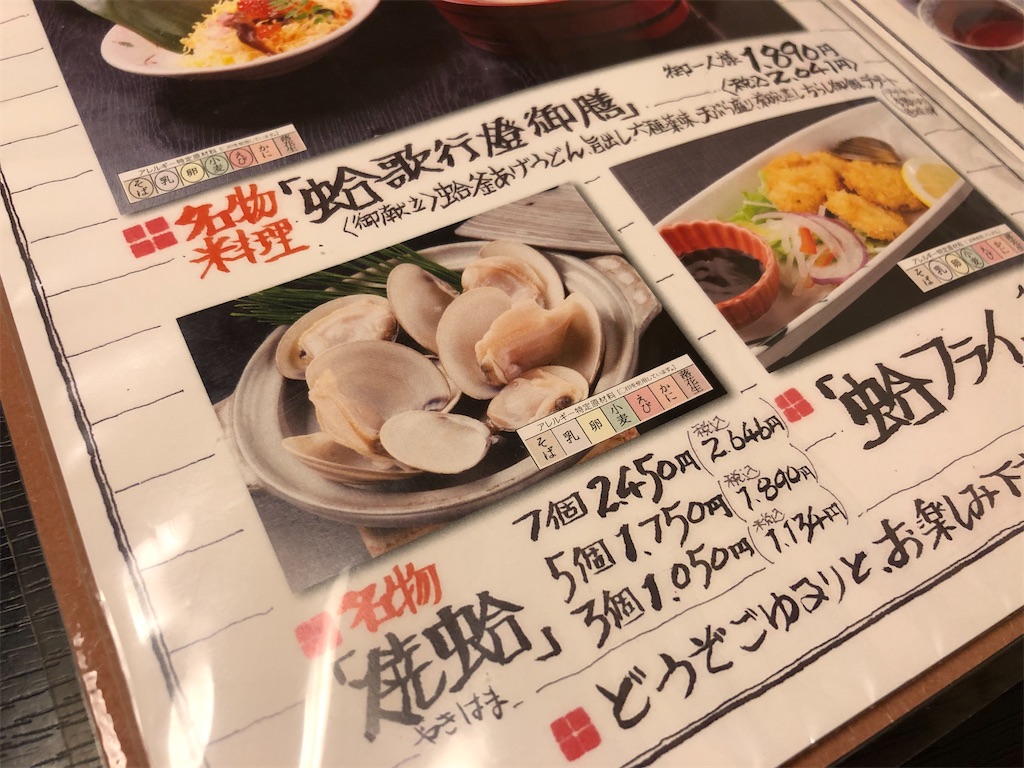 アレルギー特定原材料
そば 乳 卵 小麦 えび かに 落花生
御一人様 1.890円
(税込2.041円)
名物料理「蛤歌行燈御膳」
(御献立)蛤釜あげうどん、旨出し、六種薬味、天ぷら盛り
アレルギー特定原材料(○は使用しています。)
そば 乳 卵 小麦 えび かに 落花生
アレルギー特定原材料
そば 乳 卵 小麦 えび かに
「蛤フライ
7個 2.450円(税込2.646円)
5個 1.750円(税込1.890円)
3個 1.050円(税込1.134円)
名物
「焼蛤」
やきはま
どうぞごゆるりと、お楽しみ下